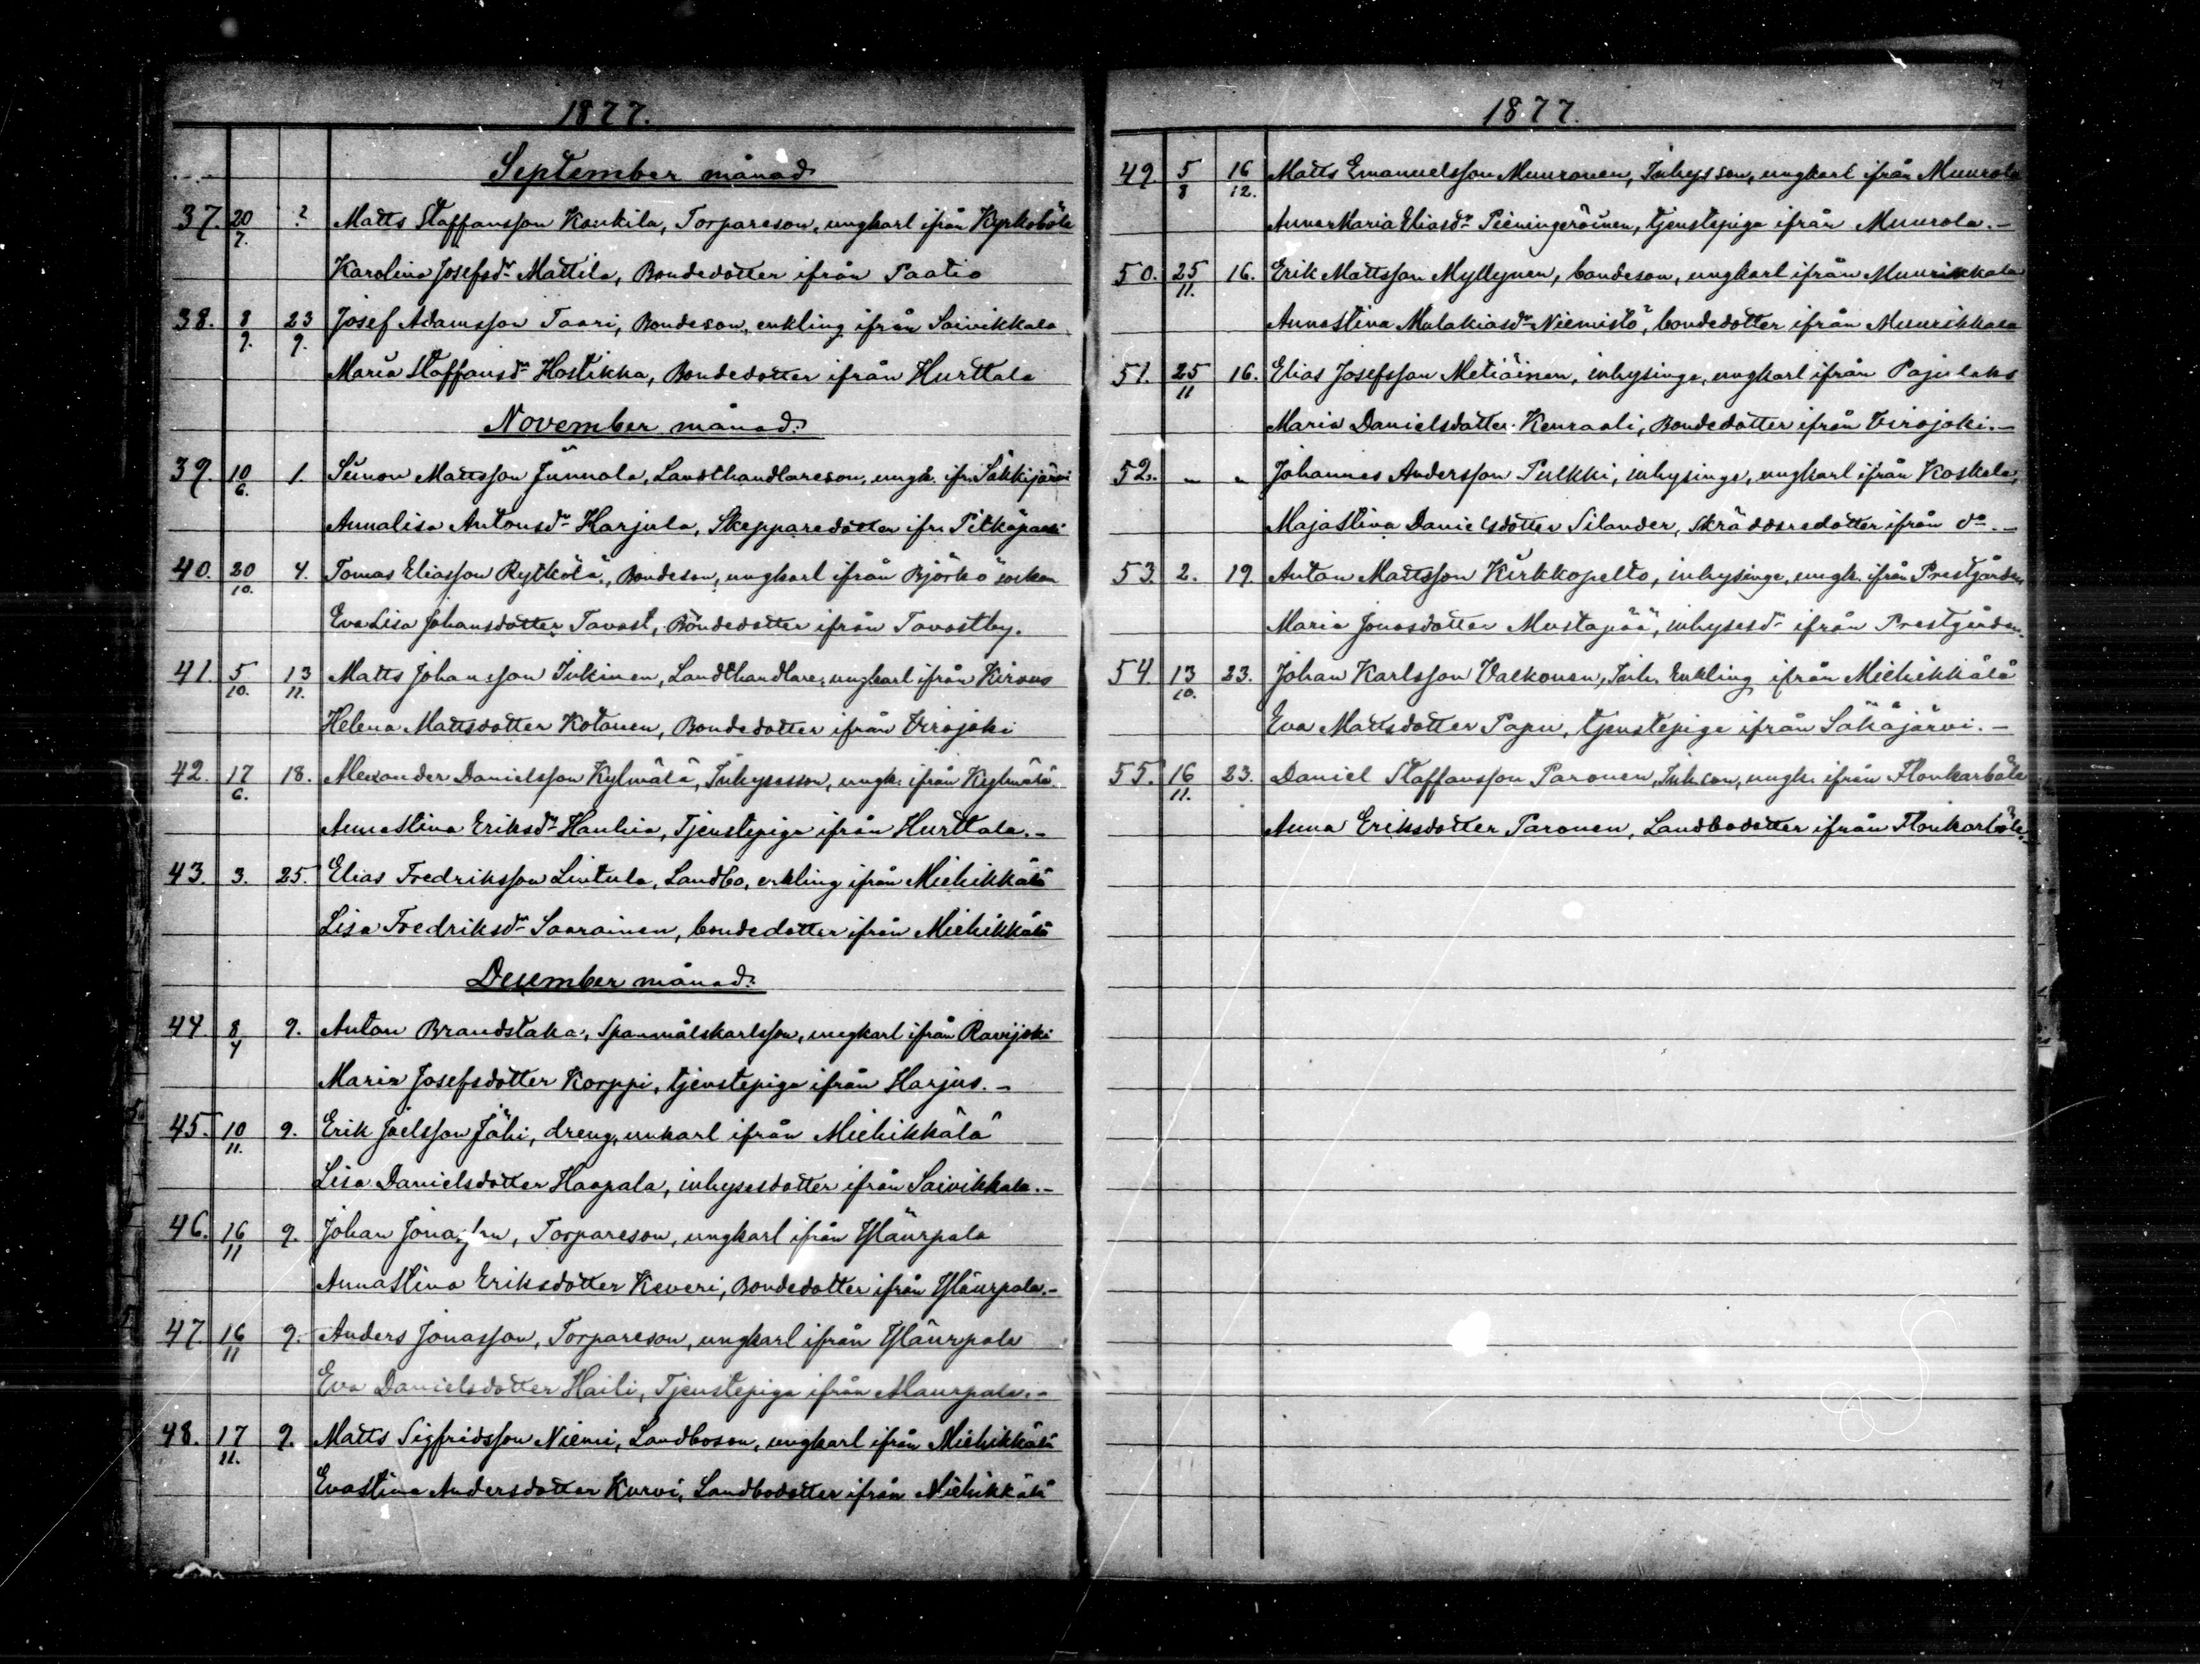 1877.
September månad
37. 20/7. 2 Matts Staffansson Konkila, Torpareson, ungkarl ifrån Kyrkoböle
Karolina Josefsdr Mattila, Bondedotter ifrån Paatio
38. 8/9. 23/9. Josef Adamsson Taari, Bondeson, enkling ifrån Saivikkala
Maria Staffansdr Hostikka, Bondedotter ifrån Hurttala
November månad.
39. 10/6. 1. Simon Mattsson Junnola, Landthandlareson, ungk. ifr. Säkkijärvi
Annalisa Antonsdr Harjula, Skepparedotter ifr. Pitkäpaasi
40. 20/10. 4. Tomas Eliasson Rytkölä, Bondeson, ungkarl ifrån Björkö socken
Eva Lisa Johansdotter Tavast, Bondedotter ifrån Tavastby.
41. 5/10. 13/11. Matts Johansson Inkinen, Landthandlare, ungkarl ifrån Kirvus
Helena Mattsdotter Kotonen, Bondedotter ifrån Virojoki
42. 17/6. 18. Alexander Danielsson Kylmälä, Inhysesson, ungk. ifrån Kylmälä.
Annastina Eriksdr Hauhia, Tjenstepiga ifrån Hurttala.-
43. 3. 25. Elias Fredriksson Lintula, Landbo, enkling ifrån Miehikkälä
Lisa Fredriksdr Saarainen, bondedotter ifrån Miehikkälä
December månad.
44. 8/4 9. Anton Brandstaka, Spanmålskarlsson, ungkarl ifrån Ravijoki
Maria Josefsdotter Korppi, tjenstepiga ifrån Harjus.-
45. 10/11. 9. Erik Joelsson Jähi, dreng, unkarl ifrån Miehikkälä
Lisa Danielsdotter Haapala, inhysesdotter ifrån Saivikkala.-
46. 16/11 9. Johan Jonasson, Torpareson, ungkarl ifrån Yläurpala
Annastina Eriksdotter Keveri, Bondedotter ifrån Yläurpala.-
47. 16/11 9. Anders Jonasson, Torpareson, ungkarl ifrån Yläurpala
Eva Danielsdotter Haili, Tjenstepiga ifrån Alaurpala.-
48. 17/11. 9. Matts Sigfridsson Niemi, Landboson, ungkarl ifrån Miehikkälä
Evastina Andersdotter Kurvi, Landbodotter ifrån Miehikkälä
1877.
49. 5/8 16/12. Matts Emanuelsson Muuronen, Inhysson, ungkarl ifrån Muurola
Anna Maria Eliasdr Pieningeröinen, tjenstepiga ifrån Muurola.-
50. 25/11. 16. Erik Mattsson Myllynen, bondeson, ungkarl ifrån Muurikkala
Annastina Malakiasdr Niemistö, bondedotter ifrån Muurikkala
51. 25/11 16. Elias Josefsson Metiäinen, inhysinge, ungkarl ifrån Pajulaks
Maria Danielsdotter Kenraali, Bondedotter ifrån Virojoki.-
52. " " Johannes Andersson Pulkki, inhysinge, ungkarl ifrån Koskela,
Majastina Danielsdotter Silander, Skräddaredotter ifrån do.-
53. 2. 19. Anton Mattsson Kirkkopelto, inhysinge, ungk. ifrån Prestgården
Maria Jonasdotter Mustapää, inhysesdr ifrån Prestgården.
54. 13/10. 23. Johan Karlsson Valkonen, Inh. Enkling ifrån Miehikkälä
Eva Mattsdotter Papu, tjenstepiga ifrån Säkäjärvi.-
55. 16/11. 23. Daniel Staffansson Paronen, Inh. son, ungk. ifrån Flonkarböle
Anna Eriksdotter Paronen, Landbodotter ifrån Flonkarböle.-